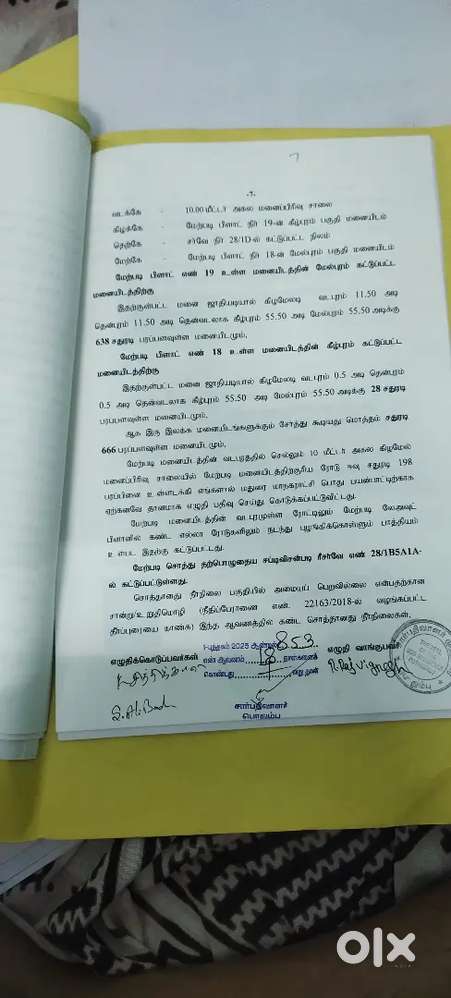 7
-7-
வடக்கே - 10.00 மீட்டர் அகல மனைப்பிரிவு சாலை
கிழக்கே - மேற்படி பிளாட் நிர் 19-ன் கீழ்புறம் பகுதி மனையிடம்
தெற்கே - சர்வே நிர் 28/1D-ல் கட்டுப்பட்ட நிலம்
மேற்கே - மேற்படி பிளாட் நிர் 18-ன் மேல்புறம் பகுதி மனையிடம்
மேற்படி பிளாட் எண் 19 உள்ள மனையிடத்தின் மேல்புறம் கட்டுப்பட்ட
மனையிடத்திற்கு
இதற்குள்பட்ட மனை ஜாதியடியால் கிழமேலடி வடபுறம் 11.50 அடி
தென்புறம் 11.50 அடி தென்வடலாக கீழ்புறம் 55.50 அடி மேல்புறம் 55.50 அடிக்கு
638 சதுரடி பரப்பளவுள்ள மனையிடமும்,
மேற்படி பிளாட் எண் 18 உள்ள மனையிடத்தின் கீழ்புறம் கட்டுப்பட்ட
மனையிடத்திற்கு
இதற்குள்பட்ட மனை ஜாதியடியால் கிழமேலடி வடபுறம் 0.5 அடி தென்புறம்
0.5 அடி தென்வடலாக கீழ்புறம் 55.50 அடி மேல்புறம் 55.50 அடிக்கு 28 சதுரடி
பரப்பளவுள்ள மனையிடமும்,
ஆக இரு இலக்க மனையிடங்களுக்கும் சேர்த்து கூடியது மொத்தம் சதுரடி
666 பரப்பளவுள்ள மனையிடமும்,
மேற்படி மனையிடத்தின் வடபுறத்தில் செல்லும் 10 மீட்டர் அகல கிழமேல்
மனைப்பிரிவு சாலையில் மேற்படி மனையிடத்திற்குரிய ரோடு ஈவு சதுரடி 198
பரப்பினை உள்ளடக்கி எங்களால் மதுரை மாநகராட்சி பொது பயன்பாட்டிற்காக
ஏற்கனவே தானமாக எழுதி பதிவு செய்து கொடுக்கப்பட்டுவிட்டது.
மேற்படி மனையிடத்தின் வடபுறமுள்ள ரோட்டிலும் மேற்படி லேஅவுட்
பிளானில் கண்ட எல்லா ரோடுகளிலும் நடந்து புழங்கிக்கொள்ளும் பாத்தியம்
உள்பட இதற்கு கட்டுப்பட்டது.
மேற்படி சொத்து தற்பொழுதைய சப்டிவிசன்படி ரீசர்வே எண் 28/1B5A1A-
ல் கட்டுப்பட்டுள்ளது.
சொத்தானது நீர்நிலை பகுதியில் அமையப் பெறவில்லை என்பதற்கான
சான்று/உறுதிமொழி (நீதிப்பேராணை எண். 22163/2018-ல் வழங்கப்பட்ட
தீர்ப்புரையை காண்க) இந்த ஆவணத்தில் கண்ட சொத்தானது நீர்நிலைகள்,
எழுதிக்கொடுப்பவர்கள்
புத்தகம் 2025 ஆண்டின்
853
எழுதி வாங்குபவர்
என் ஆவணம் 18 தாள்களைக்
கொண்டது 7 வது தாள்
சார்பதிவாளர்